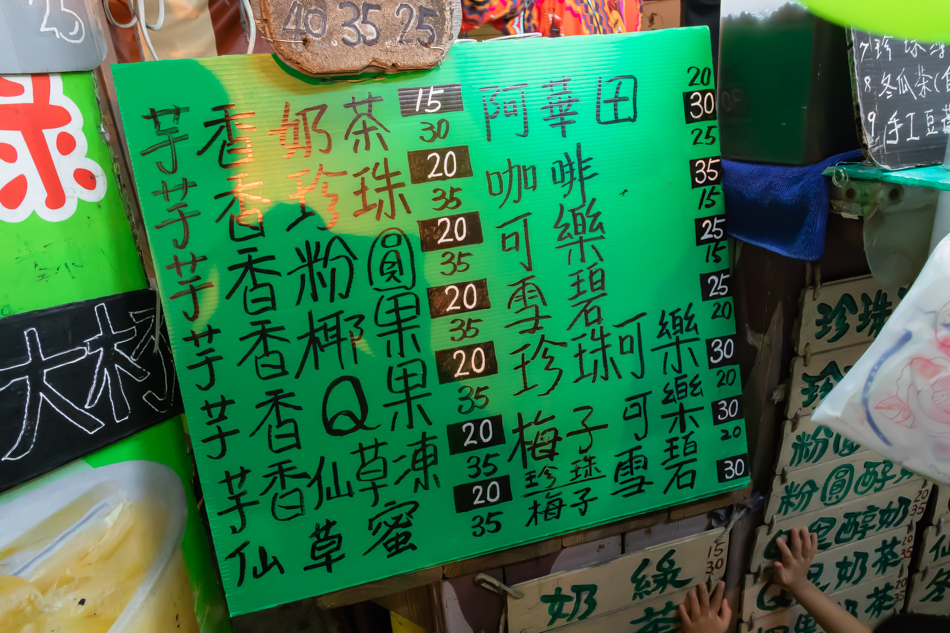 25
40 35 25
大杯
芋香奶茶 15 30
芋香珍珠 20 35
芋香粉圓 20 35
芋香椰果 20 35
芋香Q果 20 35
芋香仙草凍 20 35
仙草蜜 20 35
阿華田 20 30
咖啡 25 35
可樂 15 25
雪碧 15 25
珍珠可樂 20 30
梅子可樂 20 30
珍珠梅子雪碧 20 30
8.冬瓜茶
9.手工豆
珍珠
粉圓
粉圓酵
果醇奶 20 35
果奶茶
奶綠 15 30
茶